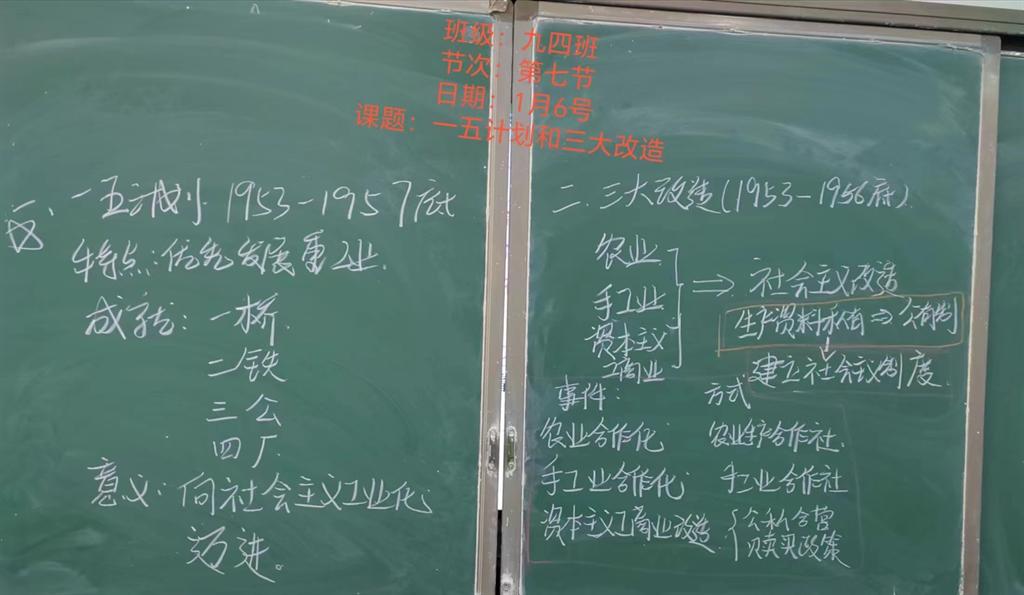 班级：九四班
节次：第七节
日期：1月6号
课题：一五计划和三大改造
一、一五计划 1953-1957底
特点：优先发展重工业.
成就：一桥.
二铁
三公
四厂
意义：向社会主义工业化
迈进。
二.三大改造(1953-1956底)
农业
手工业
资本主义
工商业
⇒ 社会主义改造
生产资料私有⇒公有制
建立社会主义制度.
事件： 方式
农业合作化 农业生产合作社.
手工业合作化 手工业合作社
资本主义工商业改造 {公私合营
赎买政策